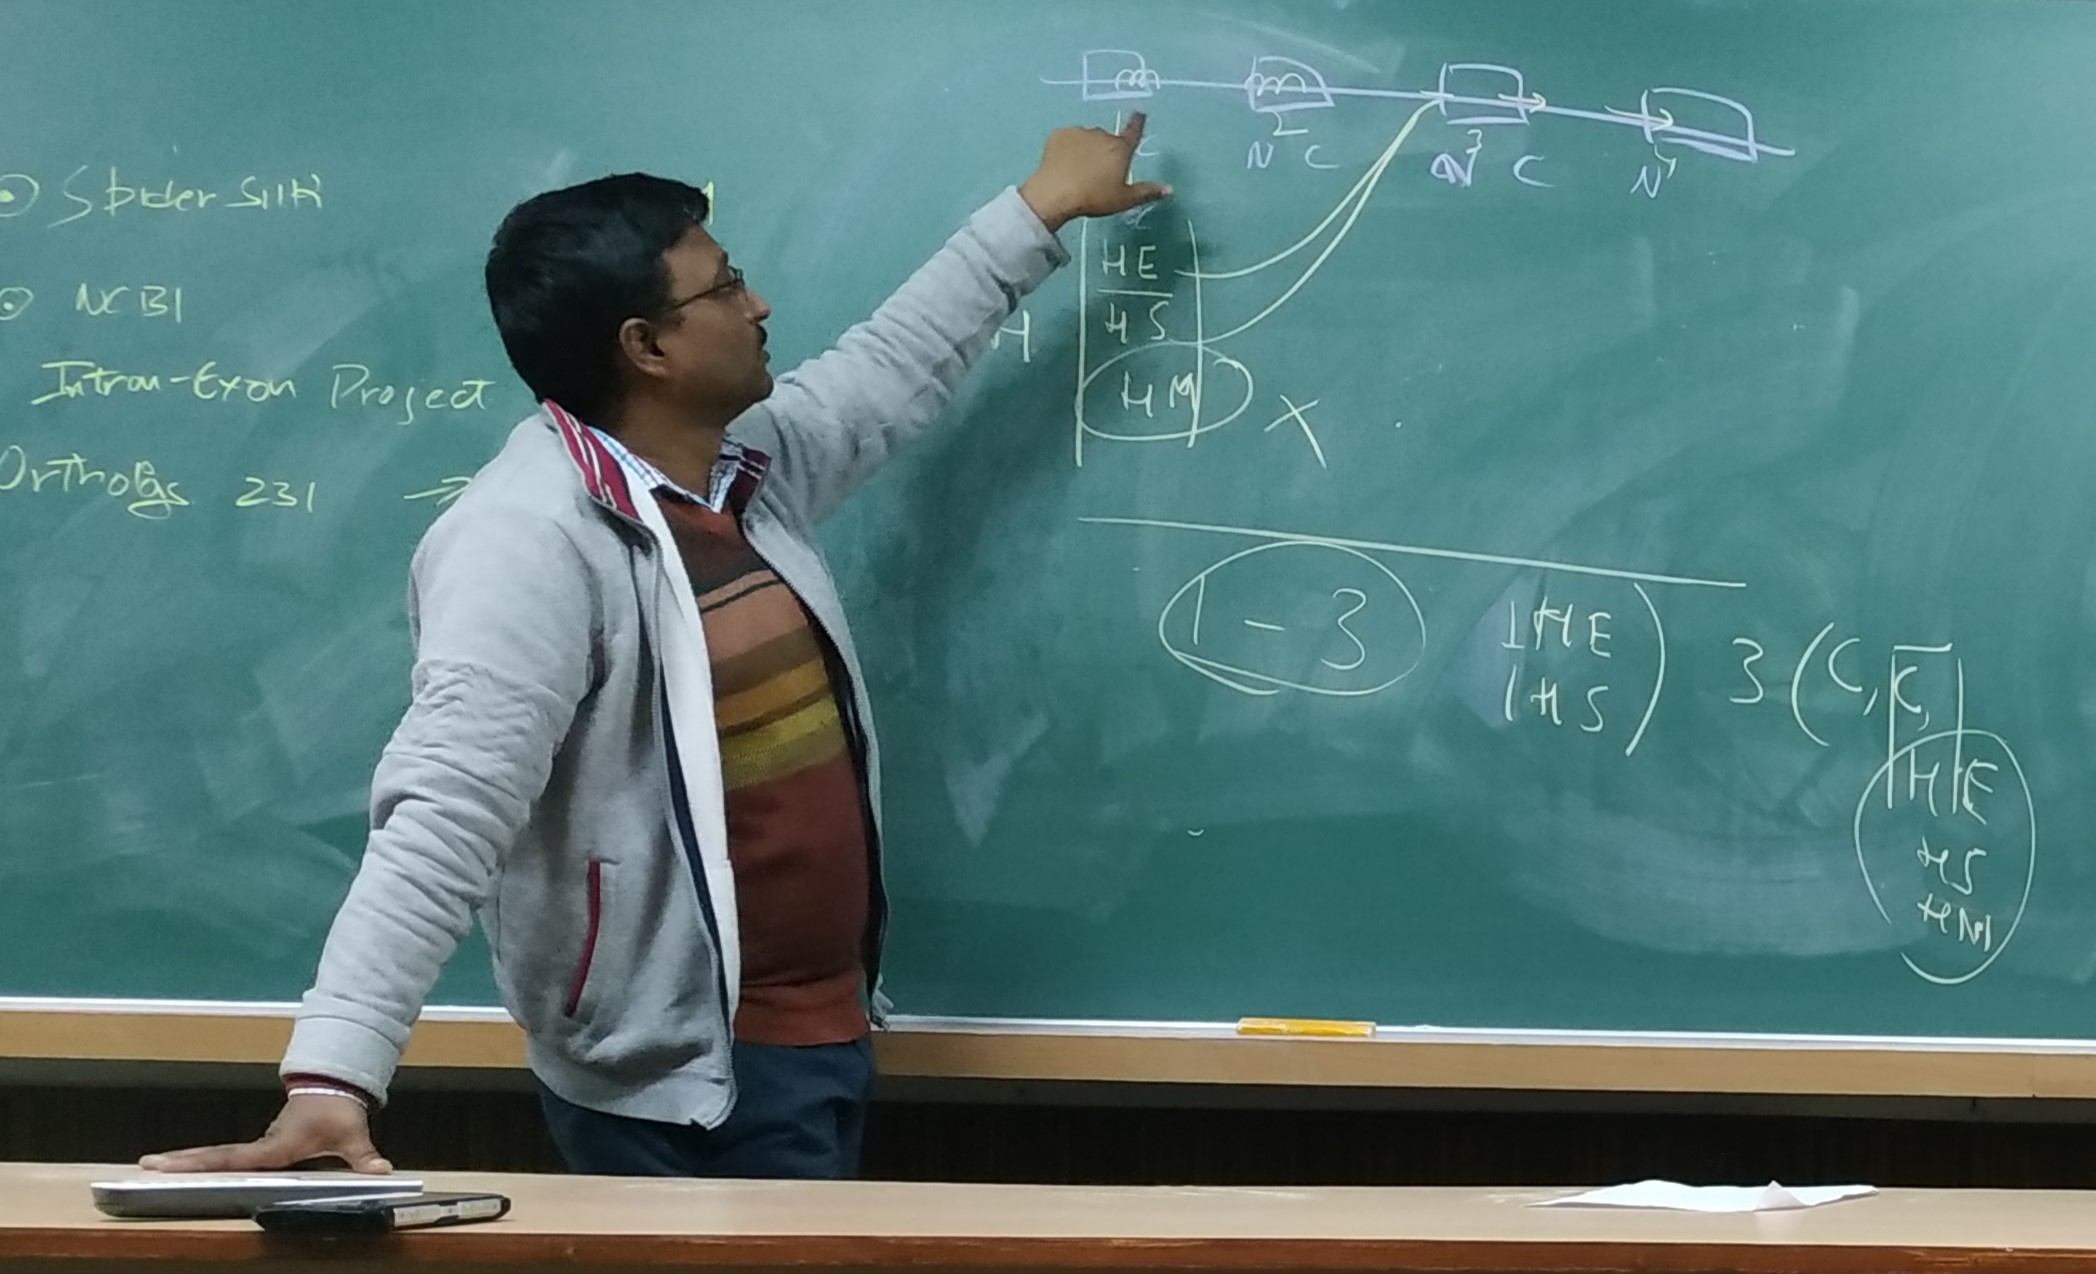 Spider Silk
NCBI
Intron-Exon Project
Orthologs 231 →
1 2 3 4
C N C N C N
HE
HS
HM X
H
1 - 3
1 HE
1 HS ) 3 (C, C,
HE
HS
HM